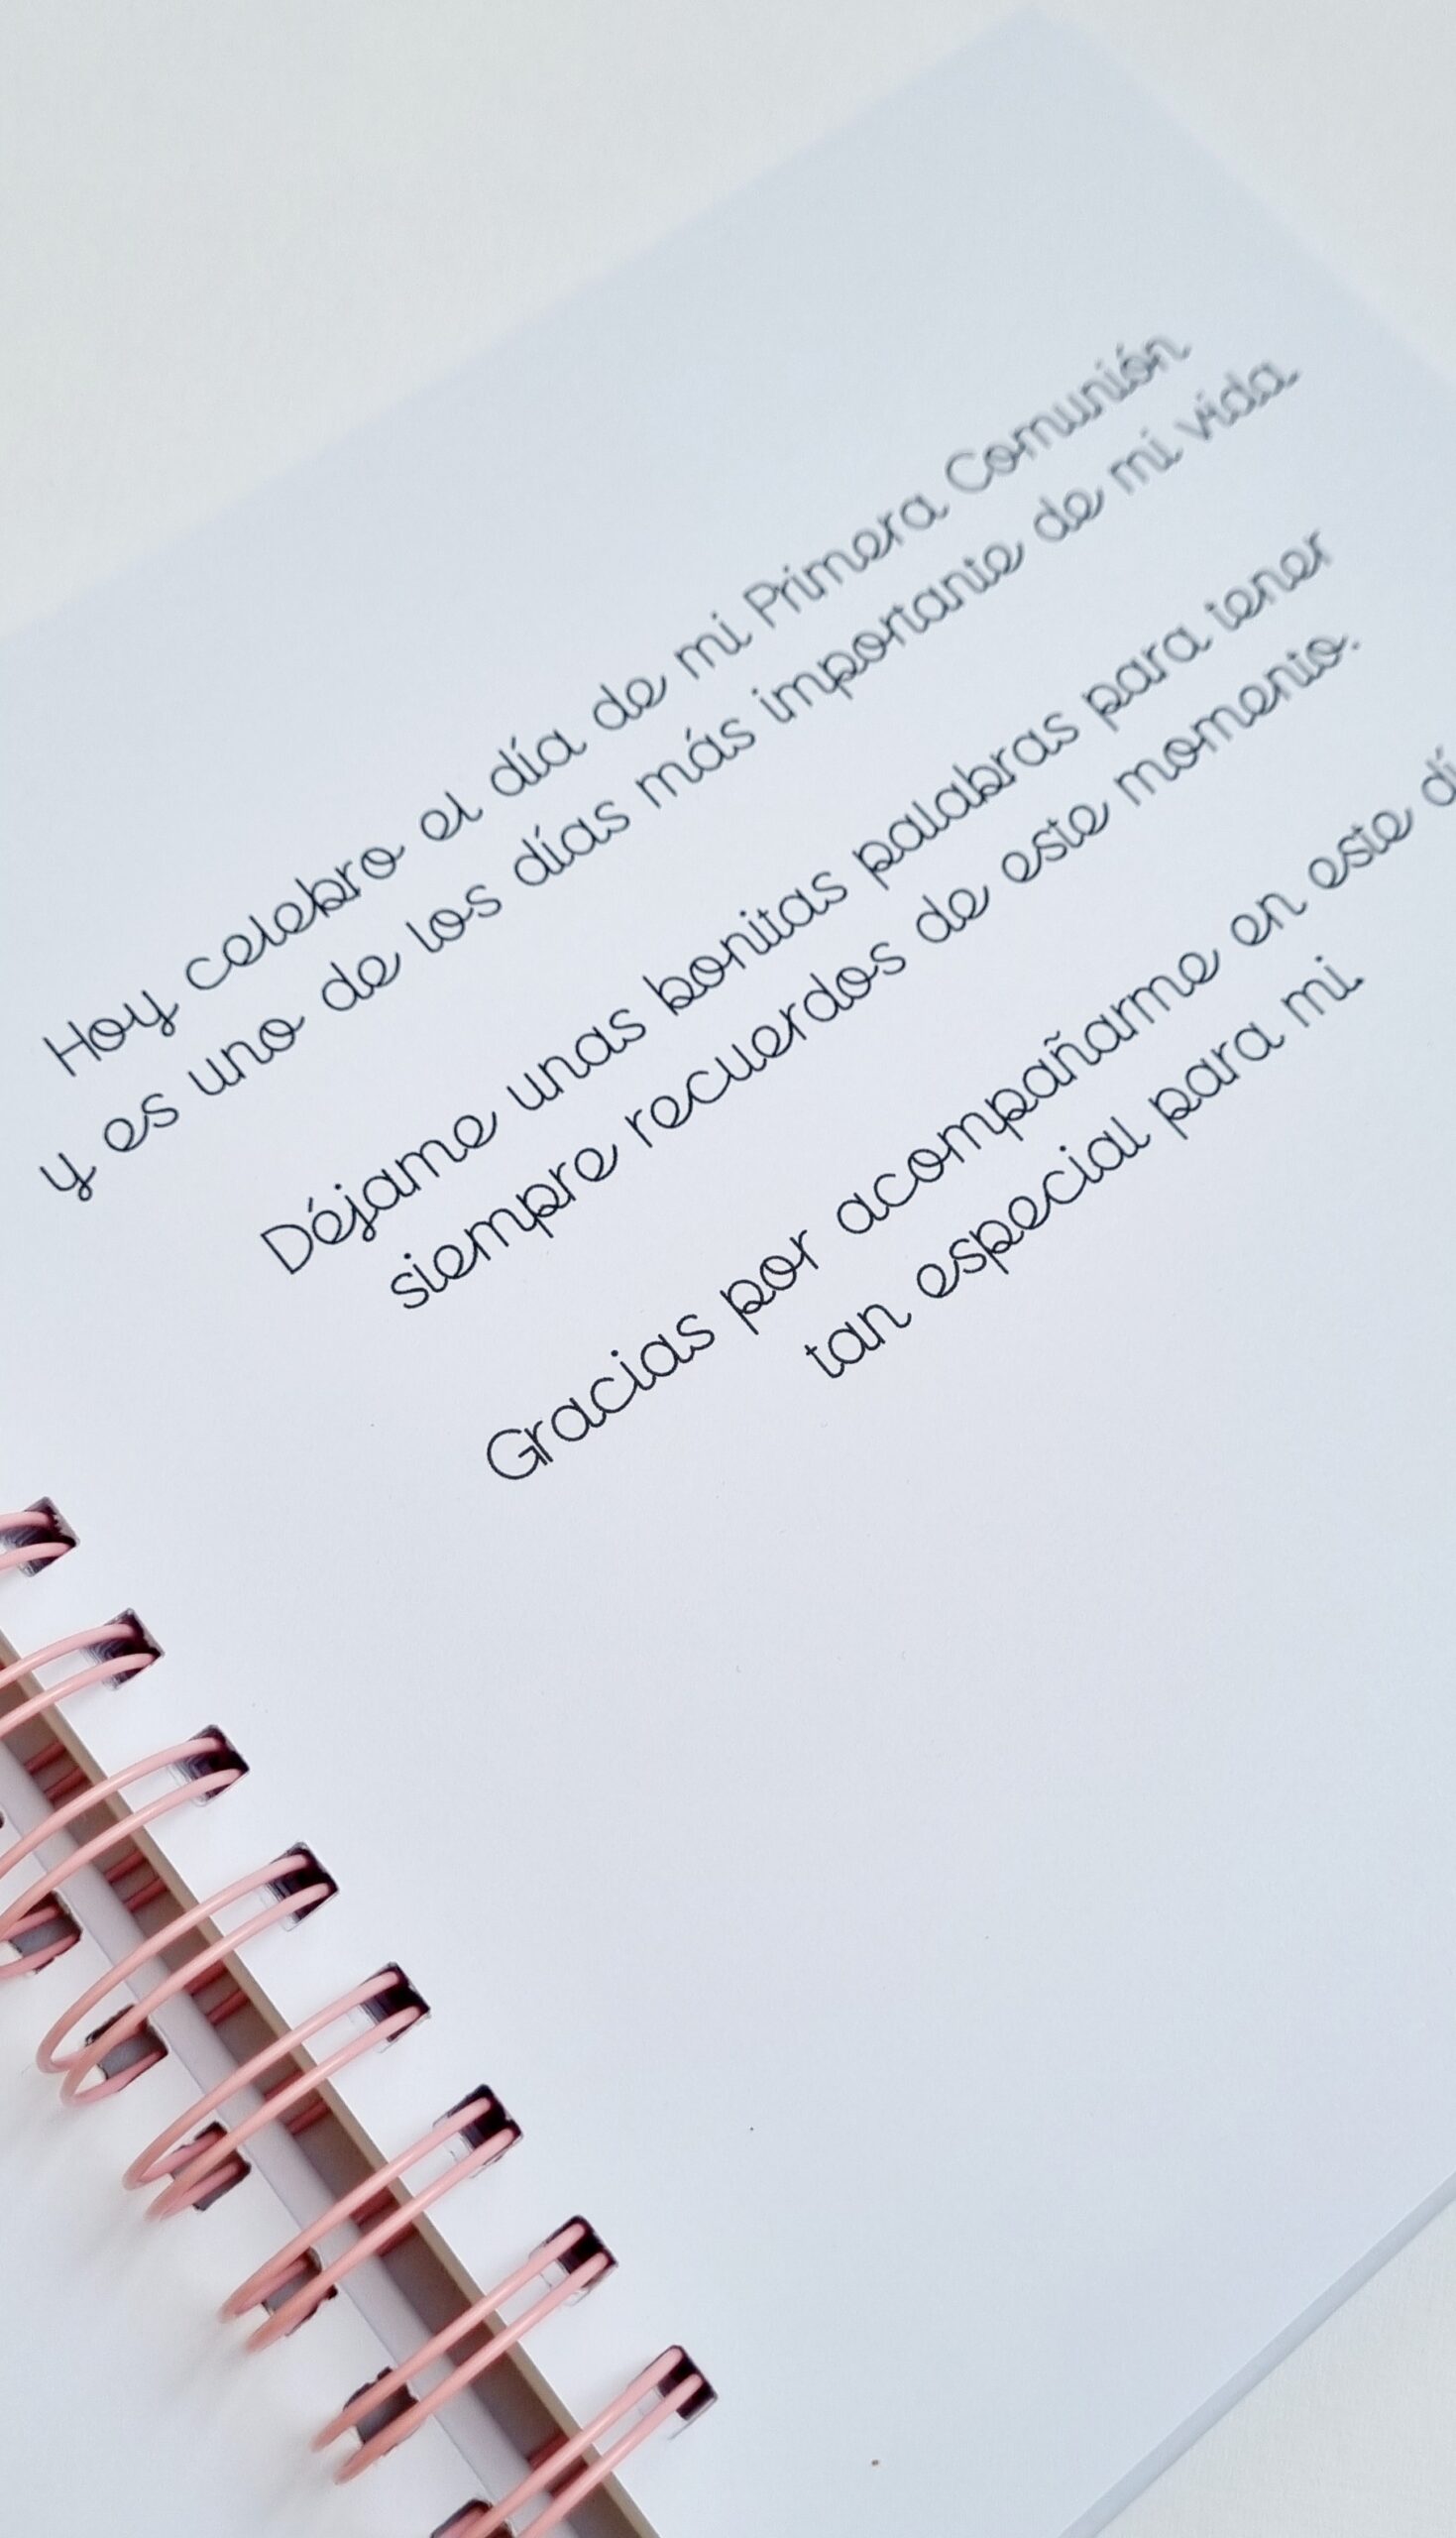 Hoy celebro el día de mi Primera Comunión
y es uno de los días más importante de mi vida
Déjame unas bonitas palabras para tener
siempre recuerdos de este momento.
Gracias por acompañarme en este dí
tan especial para mi